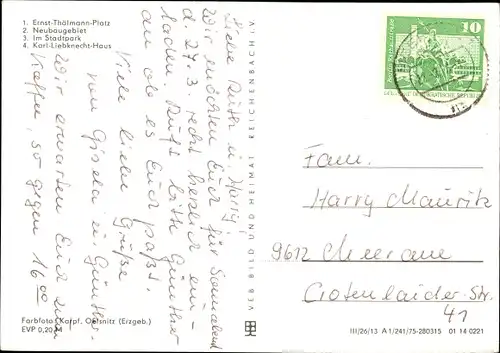 1. Ernst-Thälmann-Platz
2. Neubaugebiet
3. Im Stadtpark
4. Karl-Liebknecht-Haus
Liebe Ruth u. Harry!
Wir möchten Euch für Sonnabend
d. 27. 3. recht herzlich ein-
laden. Ruft bitte Günther
an ob es Euch paßt.
Viele liebe Grüße
von Gisela u. Günther.
Wir erwarten Euch zum
Kaffee, so gegen 16 00
Farbfotos: Karpf, Oelsnitz (Erzgeb.)
EVP 0,20 M
VEB BILD UND HEIMAT REICHENBACH I. V.
10
DEUTSCHE DEMOKRATISCHE REPUBLIK
Fam.
Harry Mauritz
9612 Meerane
Crotenlaider-Str.
41
III/26/13 A 1/241/75-280315 01 14 0221